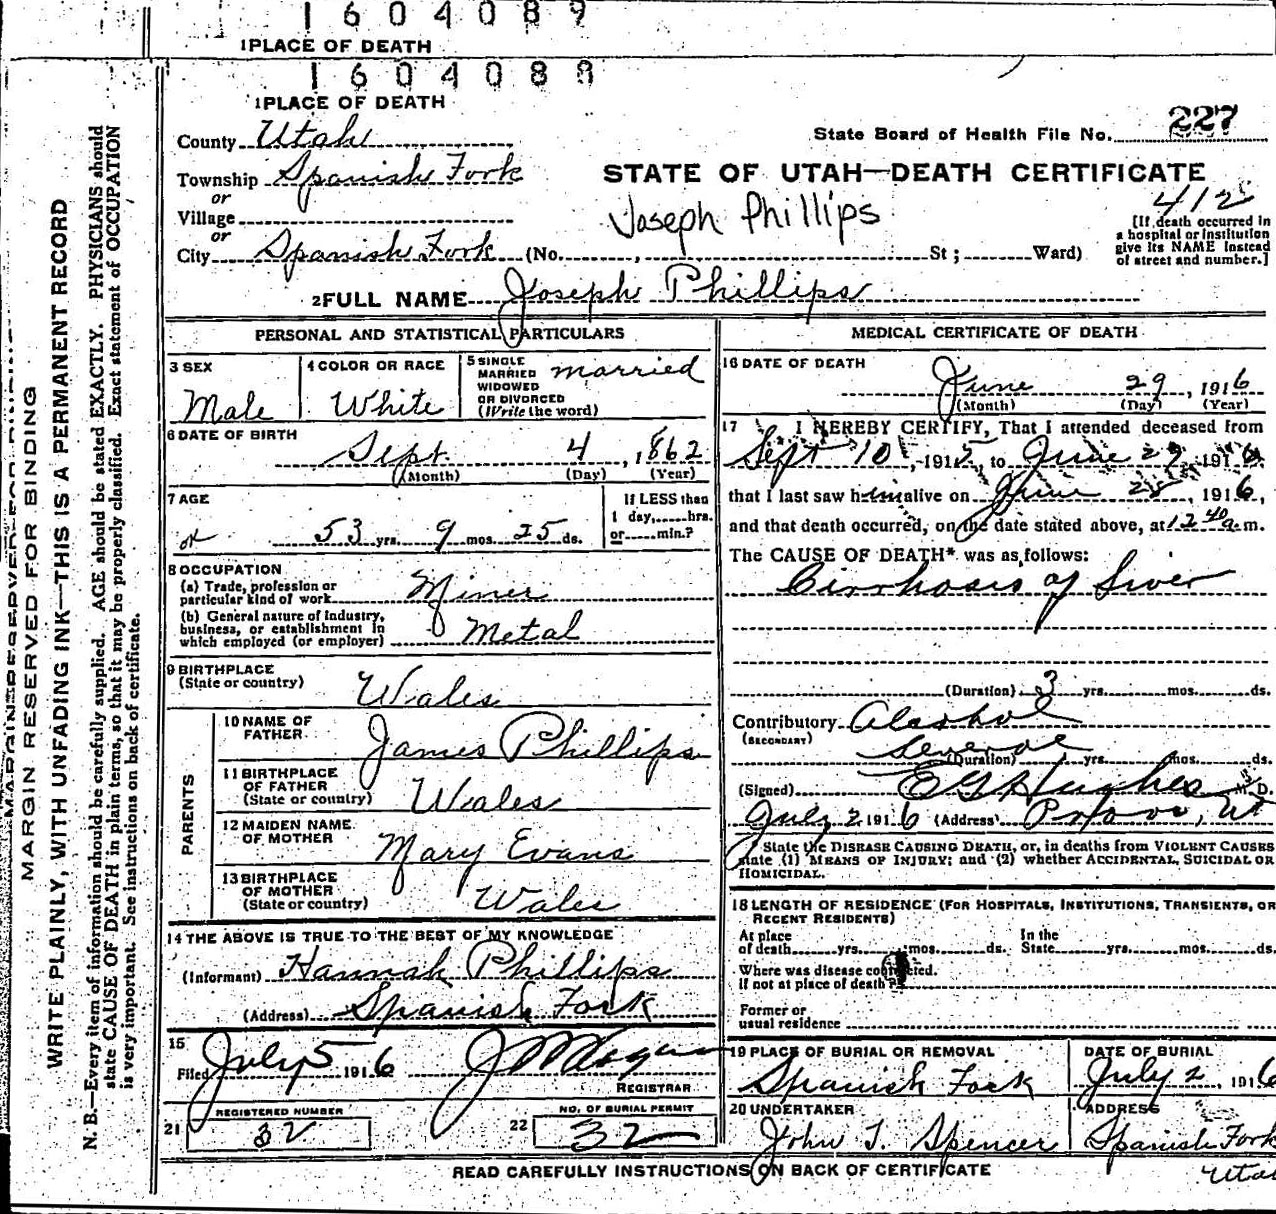 1604089
1 PLACE OF DEATH
1604088
1 PLACE OF DEATH
County Utah
State Board of Health File No. 227
Township Spanish Fork
STATE OF UTAH—DEATH CERTIFICATE
or
Village
Joseph Phillips
412
[If death occurred in
a hospital or institution
give its NAME instead
of street and number.]
or
City Spanish Fork (No. , St; Ward)
2 FULL NAME Joseph Phillips
PERSONAL AND STATISTICAL PARTICULARS
3 SEX
Male
4 COLOR OR RACE
White
5 SINGLE
MARRIED
WIDOWED
OR DIVORCED
(Write the word)
married
6 DATE OF BIRTH
Sept. 4, 1862
(Month) (Day) (Year)
7 AGE
53 yrs. 9 mos. 25 ds.
If LESS than
1 day, hrs.
or min.?
8 OCCUPATION
(a) Trade, profession or
particular kind of work Miner
(b) General nature of industry,
business, or establishment in
which employed (or employer) Metal
9 BIRTHPLACE
(State or country) Wales
PARENTS
10 NAME OF
FATHER James Phillips
11 BIRTHPLACE
OF FATHER
(State or country) Wales
12 MAIDEN NAME
OF MOTHER Mary Evans
13 BIRTHPLACE
OF MOTHER
(State or country) Wales
14 THE ABOVE IS TRUE TO THE BEST OF MY KNOWLEDGE
(Informant) Hannah Phillips
(Address) Spanish Fork
15
Filed July 5 1916
REGISTRAR
REGISTERED NUMBER
21 32
NO. OF BURIAL PERMIT
22 32
MEDICAL CERTIFICATE OF DEATH
16 DATE OF DEATH
June 29, 1916
(Month) (Day) (Year)
17 I HEREBY CERTIFY, That I attended deceased from
Sept 10, 1915 to June 29, 1916
that I last saw him alive on June 28, 1916,
and that death occurred, on the date stated above, at 12 40 a.m.
The CAUSE OF DEATH* was as follows:
Cirrhosis of Liver
(Duration) 3 yrs. mos. ds.
Contributory Alcohol
(SECONDARY)
several
(Duration) yrs. mos. ds.
(Signed) E G Hughes M. D.
July 2 1916 (Address) Provo, Ut
State the DISEASE CAUSING DEATH, or, in deaths from VIOLENT CAUSES
state (1) MEANS OF INJURY; and (2) whether ACCIDENTAL, SUICIDAL OR
HOMICIDAL.
18 LENGTH OF RESIDENCE (FOR HOSPITALS, INSTITUTIONS, TRANSIENTS, OR
RECENT RESIDENTS)
At place
of death yrs. mos. ds.
In the
State yrs. mos. ds.
Where was disease contracted.
If not at place of death?
Former or
usual residence
19 PLACE OF BURIAL OR REMOVAL
Spanish Fork
DATE OF BURIAL
July 2, 1916
20 UNDERTAKER
John T. Spencer
ADDRESS
Spanish Fork
Utah
READ CAREFULLY INSTRUCTIONS ON BACK OF CERTIFICATE
MARGIN RESERVED FOR BINDING
MARGIN RESERVED FOR BINDING
WRITE PLAINLY, WITH UNFADING INK—THIS IS A PERMANENT RECORD
N. B.—Every item of information should be carefully supplied. AGE should be stated EXACTLY. PHYSICIANS should
state CAUSE OF DEATH in plain terms, so that it may be properly classified. Exact statement of OCCUPATION
is very important. See instructions on back of certificate.